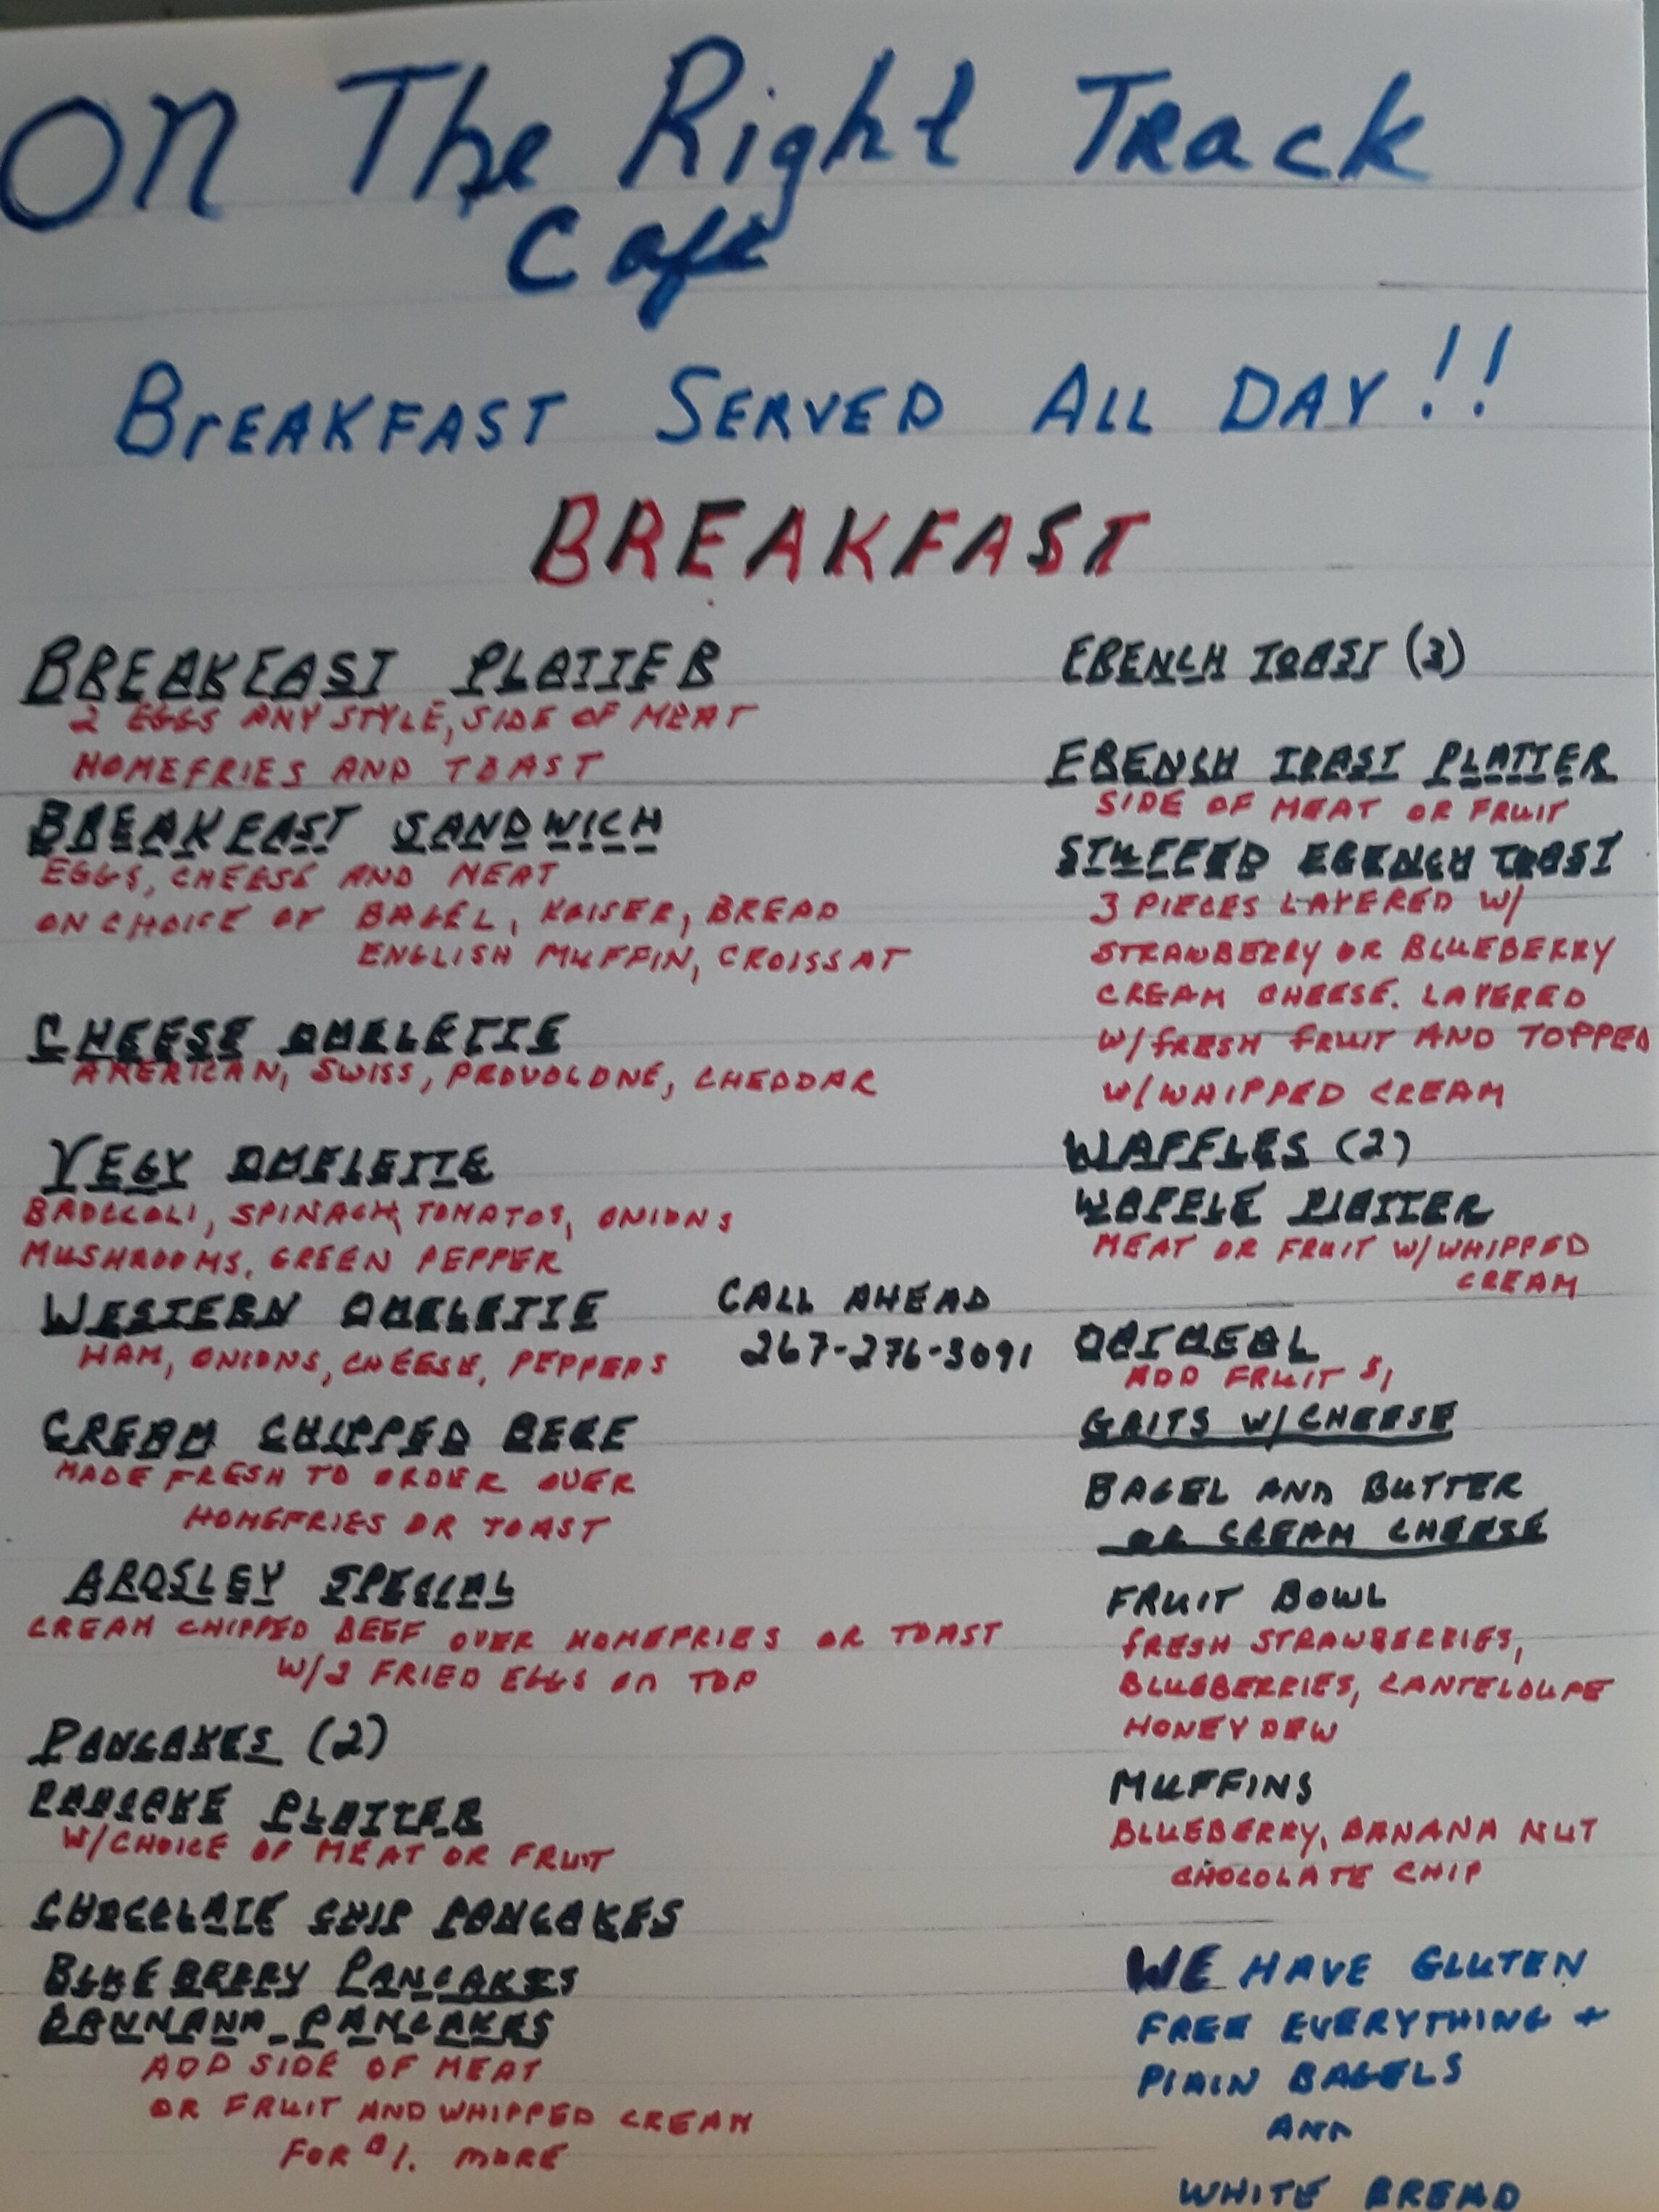 On The Right Track
Cafe
BrEAKFAST SERVED ALL DAY!!
BREAKFAST
BREAKFAST PLATTER
2 EGGS ANY STYLE, SIDE OF MEAT
HOMEFRIES AND TOAST
BREAKFAST SANDWICH
EGGS, CHEESE AND MEAT
ON CHOICE OF BAGEL, KAISER, BREAD
ENGLISH MUFFIN, CROISSAT
CHEESE OMELETTE
AMERICAN, SWISS, PROVOLONE, CHEDDAR
VEGY OMELETTE
BROCCOLI, SPINACH, TOMATOS, ONIONS
MUSHROOMS, GREEN PEPPER
WESTERN OMELETTE
HAM, ONIONS, CHEESE, PEPPERS
CALL AHEAD
267-276-3091
CREAM CHIPPED BEEF
MADE FRESH TO ORDER OVER
HOMEFRIES OR TOAST
ARDSLEY SPECIAL
CREAM CHIPPED BEEF OVER HOMEFRIES OR TOAST
W/2 FRIED EGGS ON TOP
PANCAKES (2)
PANCAKE PLATTER
W/CHOICE OF MEAT OR FRUIT
CHOCOLATE CHIP PANCAKES
BLUEBERRY PANCAKES
BANNANA PANCAKES
ADD SIDE OF MEAT
OR FRUIT AND WHIPPED CREAM
FOR $1. MORE
FRENCH TOAST (3)
FRENCH TOAST PLATTER
SIDE OF MEAT OR FRUIT
STUFFED FRENCH TOAST
3 PIECES LAYERED W/
STRAWBERRY OR BLUEBERRY
CREAM CHEESE. LAYERED
W/FRESH FRUIT AND TOPPED
W/WHIPPED CREAM
WAFFLES (2)
WAFFLE PLATTER
MEAT OR FRUIT W/WHIPPED
CREAM
OATMEAL
ADD FRUIT $1
GRITS W/CHEESE
BAGEL AND BUTTER
OR CREAM CHEESE
FRUIT BOWL
FRESH STRAWBERRIES,
BLUEBERRIES, CANTELOUPE
HONEYDEW
MUFFINS
BLUEBERRY, BANANA NUT
CHOCOLATE CHIP
WE HAVE GLUTEN
FREE EVERYTHING +
PLAIN BAGELS
AND
WHITE BREAD